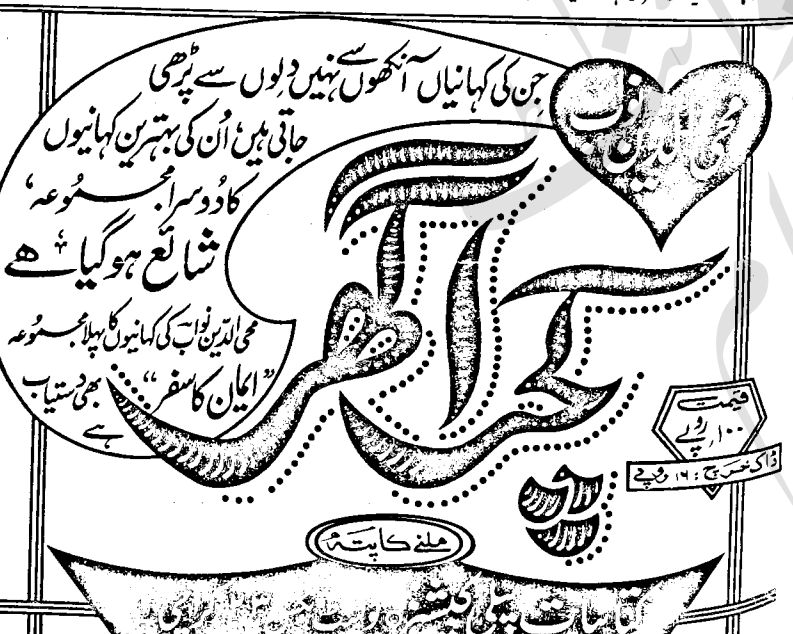 محی الدین نواب
جن کی کہانیاں آنکھوں سے نہیں دلوں سے پڑھی
جاتی ہیں، اُن کی بہترین کہانیوں
کا دُوسرا مجموعہ،
شائع ہو گیا ہے
محی الدین نواب کی کہانیوں کا پہلا مجموعہ
"ایمان کا سفر" بھی دستیاب
ہے
کچرا گھر
قیمت
۱۰۰ روپے
ڈاک خرچ : ۱۶ روپے
ملنے کا پتہ
کتابیات پبلی کیشنز